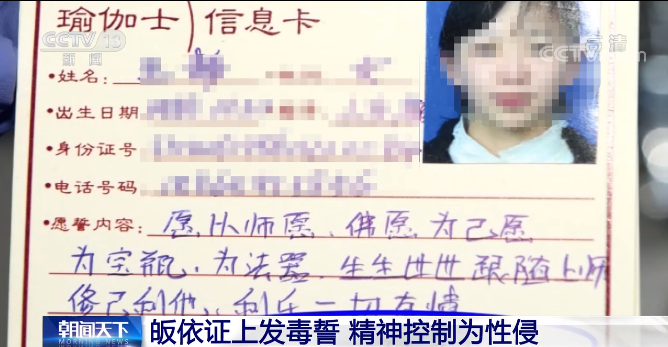 瑜伽士 信息卡
CCTV 13
新闻
高清
•姓名:
•出生日期
•身份证号
•电话号码
•愿誓内容: 愿以师愿、佛愿为己愿
为宝瓶、为法器、生生世世跟随上师
修己利他、利乐一切有情
朝闻天下
皈依证上发毒誓 精神控制为性侵